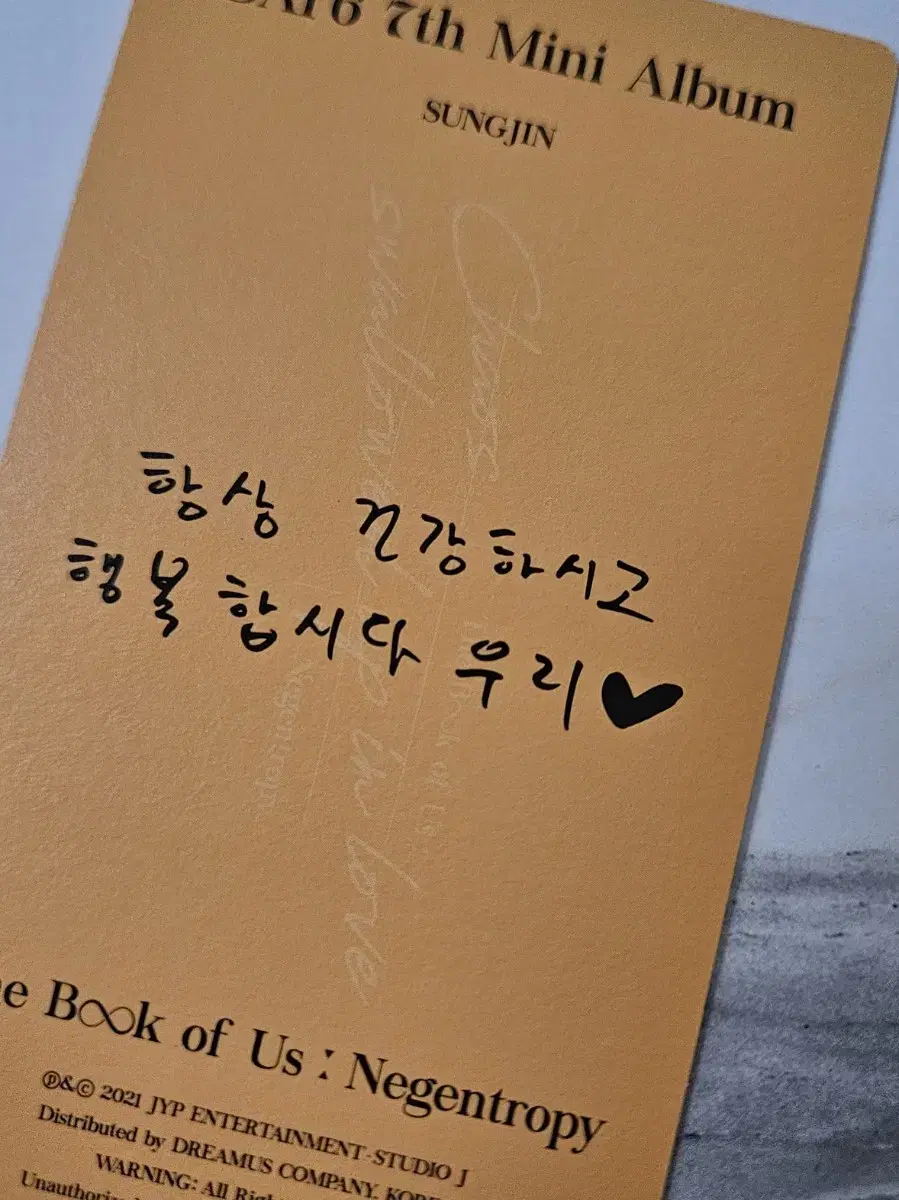 DAY6 7th Mini Album
SUNGJIN
Chaos
swallowed up in love
항상 건강하시고
행복합시다 우리♥
Book of Us : Negentropy
℗&© 2021 JYP ENTERTAINMENT-STUDIO J
Distributed by DREAMUS COMPANY. KOR
WARNING: All Righ
Unauthoriz